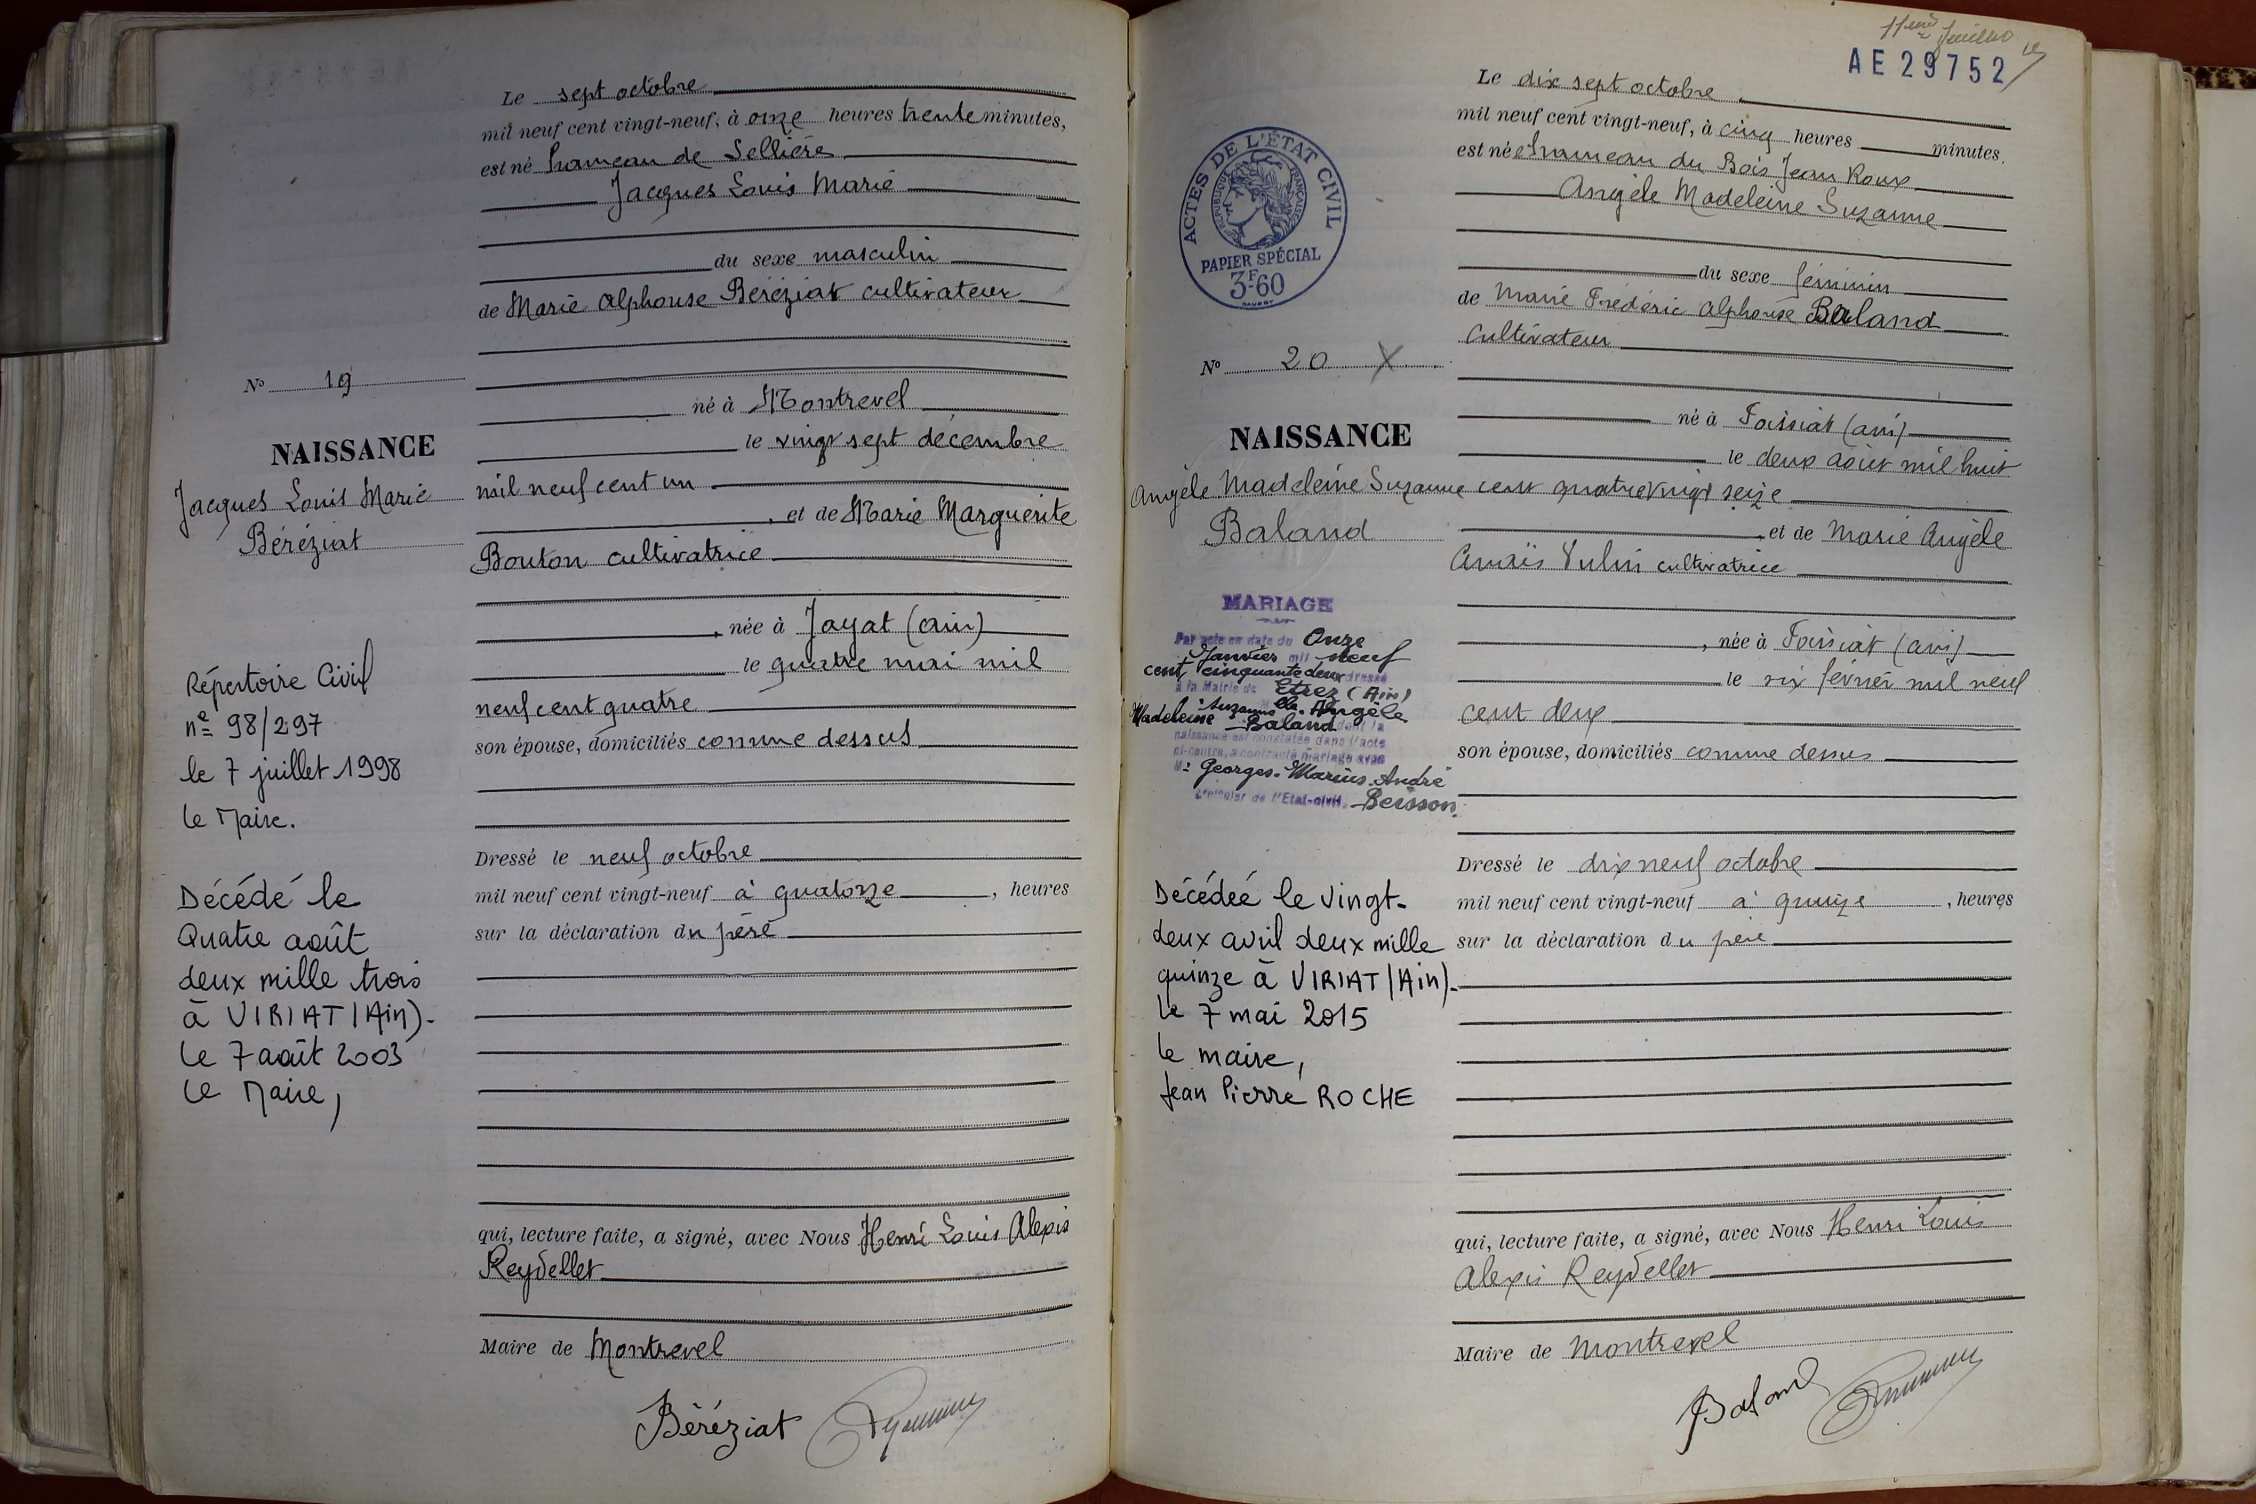 Le sept octobre
mil neuf cent vingt-neuf, à onze heures trente minutes,
est né hameau de Sellière
Jacques Louis Marie
du sexe masculin
de Marie Alphonse Béréziat cultivateur
né à Montrevel
le vingt sept décembre
mil neuf cent un
, et de Marie Marguerite
Bouton cultivatrice
, née à Jayat (ain)
le quatre mai mil
neuf cent quatre
son épouse, domiciliés comme dessus
Dressé le neuf octobre
mil neuf cent vingt-neuf à quatorze, heures
sur la déclaration du père
qui, lecture faite, a signé, avec Nous Henri Louis Alexis
Reydellet
Maire de Montrevel
Béréziat
No 19
NAISSANCE
Jacques Louis Marie
Béréziat
Répertoire Civil
nº 98/297
le 7 juillet 1998
le Maire.
Décédé le
Quatre août
deux mille trois
à VIRIAT (Ain).
Le 7 août 2003
Le Maire,
11ème feuillet
AE 29752
Le dix sept octobre
mil neuf cent vingt-neuf, à cinq heures minutes.
est née hameau du Bois Jean Roux
Angèle Madeleine Suzanne
du sexe féminin
de Marie Frédéric Alphonse Baland
cultivateur
né à Foissiat (ain)
le deux août mil huit
cent quatre vingt seize
, et de Marie Angèle
Anaïs Vulin cultivatrice
, née à Foissiat (ain)
le six février mil neuf
cent deux
son épouse, domiciliés comme dessus
Dressé le dix neuf octobre
mil neuf cent vingt-neuf à quinze, heures
sur la déclaration du père
qui, lecture faite, a signé, avec Nous Henri Louis
Alexis Reydellet
Maire de Montrevel
Baland
ACTES DE L'ÉTAT CIVIL
RÉPUBLIQUE FRANÇAISE
PAPIER SPÉCIAL
3F60
No 20 X
NAISSANCE
Angèle Madeleine Suzanne
Baland
MARIAGE
Par acte en date du Onze
Janvier mil neuf
cent cinquante deux dressé
à la Mairie de Etrez (Ain)
Suzanne Angèle
Madeleine Baland dont la
naissance est constatée dans l'acte
ci-contre, a contracté mariage avec
Mr Georges-Marius-André
de l'Etat-civil. Beisson.
Décédeé le vingt-
deux avril deux mille
quinze à VIRIAT (Ain).
Le 7 mai 2015
le maire,
Jean Pierre ROCHE